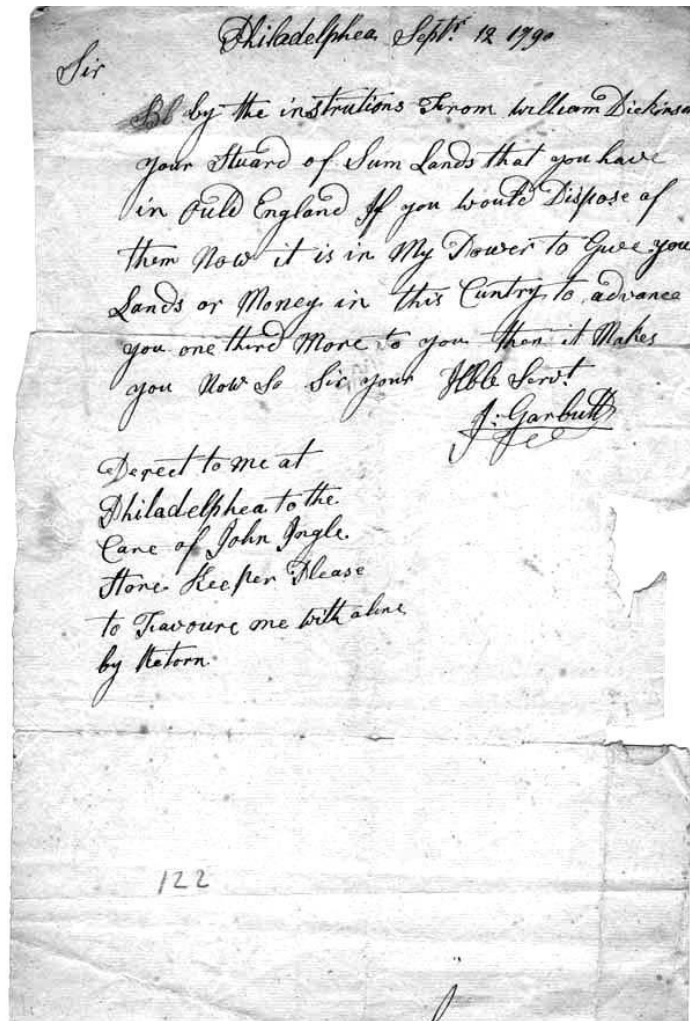 Philadelphea Septr. 12 1790
Sir
by the instrutions From william Dickinson
your Stuard of Sum Lands that you have
in Ould England If you would Dispose of
them Now it is in My Power to Give you
Lands or Money in this Cuntry to advance
you one third More to you then it Makes
you Now So Sir your Hble Servt
J: Garbutt
Derect to me at
Philadelphea to the
Care of John Ingle
Store Keeper Please
to Favoure me with a line
by Retorn
122